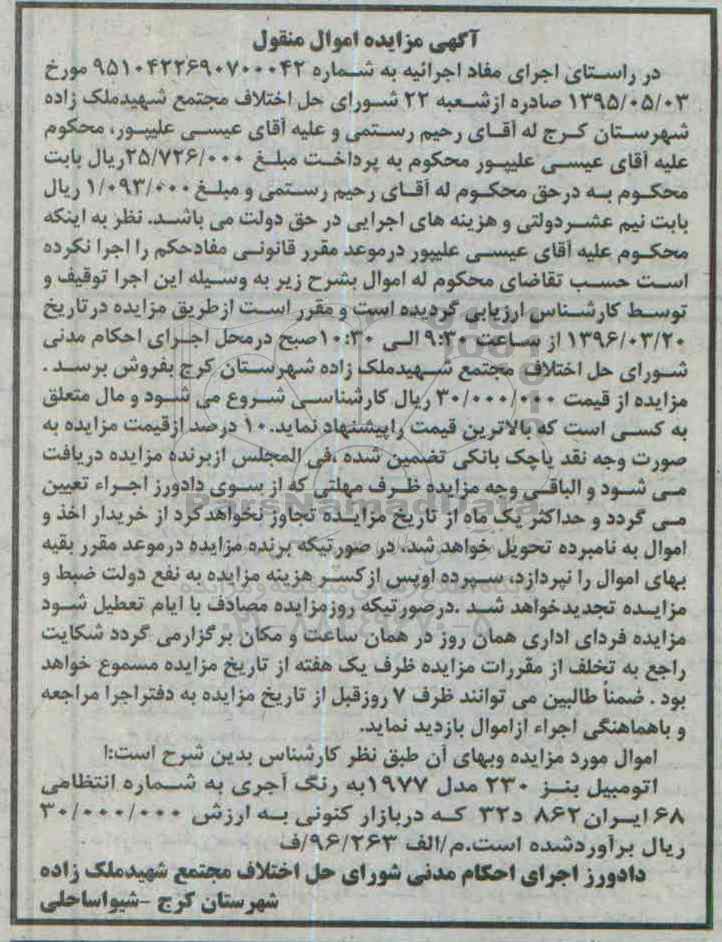 آگهی مزایده اموال منقول
در راستای اجرای مفاد اجرائیه به شماره ۹۵۱۰۴۲۲۶۹۰۷۰۰۰۴۲ مورخ
۱۳۹۵/۰۵/۰۳ صادره ازشعبه ۲۲ شورای حل اختلاف مجتمع شهیدملک زاده
شهرستان کرج له آقای رحیم رستمی و علیه آقای عیسی علیپور، محکوم
علیه آقای عیسی علیپور محکوم به پرداخت مبلغ ۲۵/۷۲۶/۰۰۰ریال بابت
محکوم به درحق محکوم له آقای رحیم رستمی و مبلغ ۱/۰۹۳/۰۰۰ ریال
بابت نیم عشردولتی و هزینه های اجرایی در حق دولت می باشد. نظر به اینکه
محکوم علیه آقای عیسی علیپور درموعد مقرر قانونی مفادحکم را اجرا نکرده
است حسب تقاضای محکوم له اموال بشرح زیر به وسیله این اجرا توقیف و
توسط کارشناس ارزیابی گردیده است و مقرر است ازطریق مزایده درتاریخ
۱۳۹۶/۰۳/۲۰ از ساعت ۹:۳۰ الی ۱۰:۳۰صبح درمحل اجرای احکام مدنی
شورای حل اختلاف مجتمع شهیدملک زاده شهرستان کرج بفروش برسد .
مزایده از قیمت ۳۰/۰۰۰/۰۰۰ ریال کارشناسی شروع می شود و مال متعلق
به کسی است که بالاترین قیمت راپیشنهاد نماید.۱۰ درصد ازقیمت مزایده به
صورت وجه نقد یاچک بانکی تضمین شده ،فی المجلس ازبرنده مزایده دریافت
می شود و الباقی وجه مزایده ظرف مهلتی که از سوی دادورز اجراء تعیین
می گردد و حداکثر یک ماه از تاریخ مزایده تجاوز نخواهدکرد از خریدار اخذ و
اموال به نامبرده تحویل خواهد شد. در صورتیکه برنده مزایده درموعد مقرر بقیه
بهای اموال را نپردازد، سپرده اوپس ازکسر هزینه مزایده به نفع دولت ضبط و
مزایده تجدیدخواهد شد .درصورتیکه روزمزایده مصادف با ایام تعطیل شود
مزایده فردای اداری همان روز در همان ساعت و مکان برگزارمی گردد شکایت
راجع به تخلف از مقررات مزایده ظرف یک هفته از تاریخ مزایده مسموع خواهد
بود . ضمناً طالبین می توانند ظرف ۷ روزقبل از تاریخ مزایده به دفتراجرا مراجعه
و باهماهنگی اجراء ازاموال بازدید نماید.
اموال مورد مزایده وبهای آن طبق نظر کارشناس بدین شرح است:ا
اتومبیل بنز ۲۳۰ مدل ۱۹۷۷به رنگ آجری به شماره انتظامی
۶۸ ایران۸۶۲ د۳۲ که دربازار کنونی به ارزش ۳۰/۰۰۰/۰۰۰
ریال برآوردشده است.م/الف ۹۶/۲۶۳/ف
دادورز اجرای احکام مدنی شورای حل اختلاف مجتمع شهیدملک زاده
شهرستان کرج -شیواساحلی
ParsNamadData